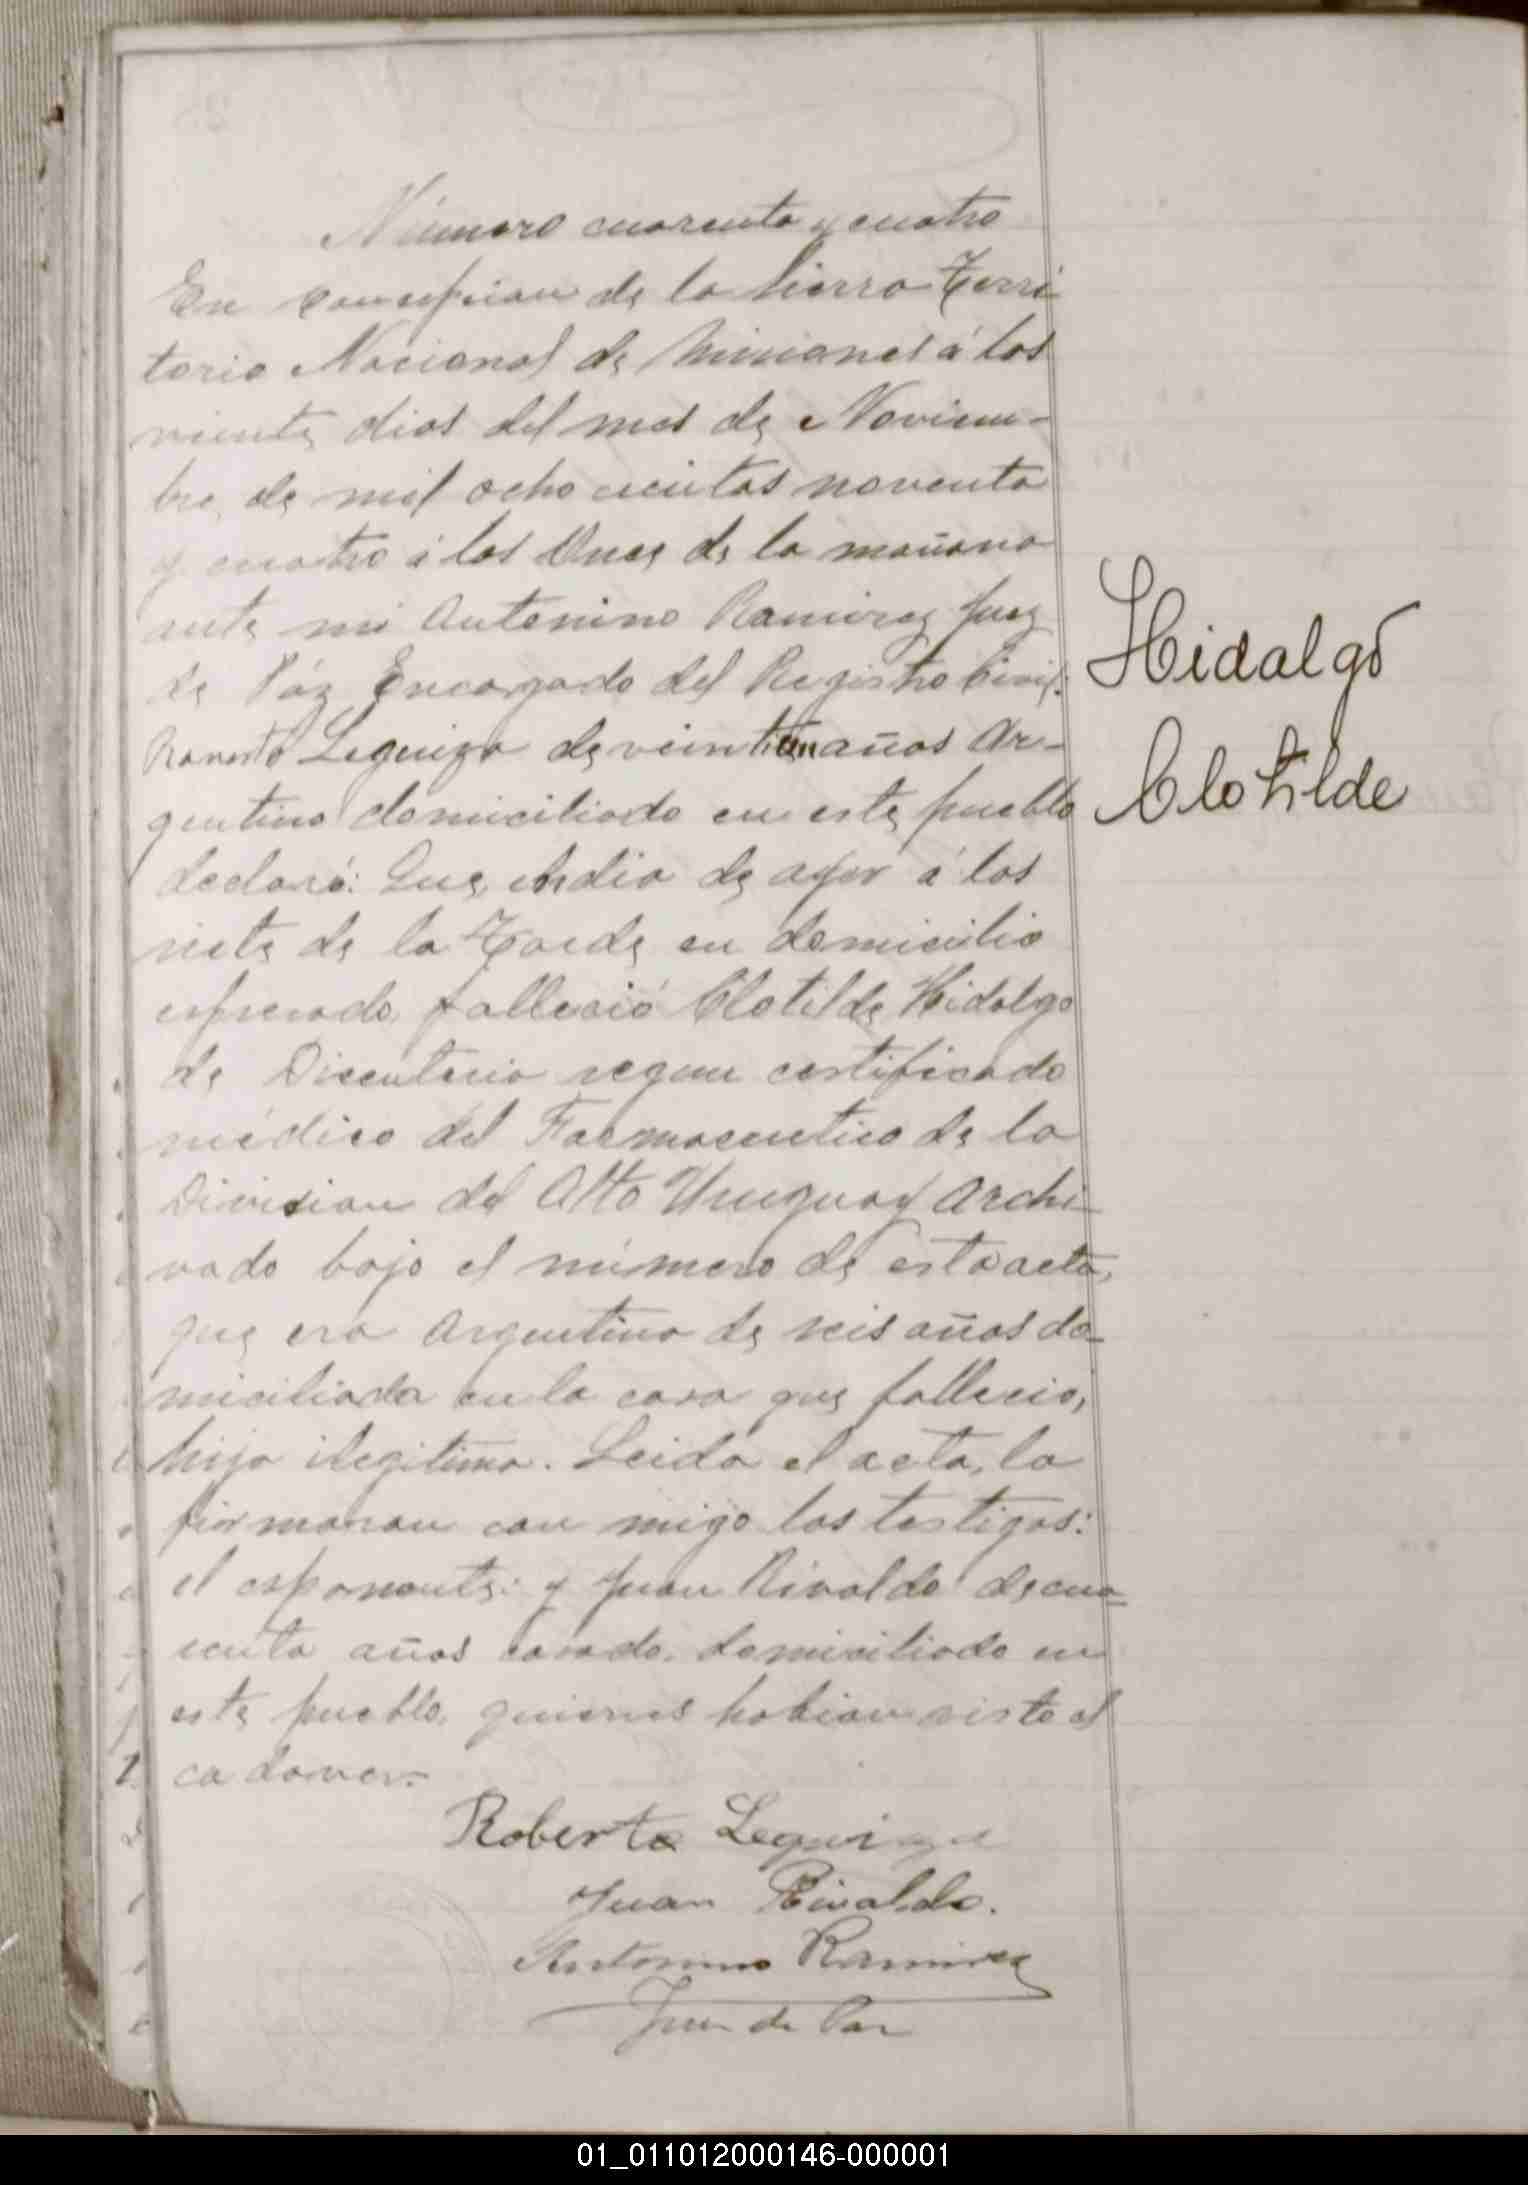 Número cuarenta y cuatro
En Concepcion de la Sierra Terri
torio Nacional de Misiones á los
viente dias del mes de Noviem-
bre, de mil ocho cientos noventa
y cuatro á las Once de la mañana
ante mi Antonino Ramirez Juez
de Páz Encargado del Registro Civil:
Roberto Leguiza de veintiun años Ar-
gentino domiciliado en este pueblo
declaró: Que, el dia de ayer á las
siete de la Tarde en domicilio
espresado, falleció Clotilde Hidalgo
de Disenteria segun certificado
médico del Farmaceutico de la
Division del Alto Uruguay Archi-
vado bajo el número de esta acta,
que era Argentina de seis años do-
miciliada en la casa que fallecio,
hija ilegitima. Leida el acta, la
firmaron con migo los testigos:
el esponente: y Juan Rivaldo de cua-
renta años casado, domiciliado en
este pueblo, quienes habian visto el
cadaver.-
Roberto Leguiza
Juan Rivaldo.
Antonino Ramirez
Juez de Paz
Hidalgo
Clotilde
01_011012000146-000001